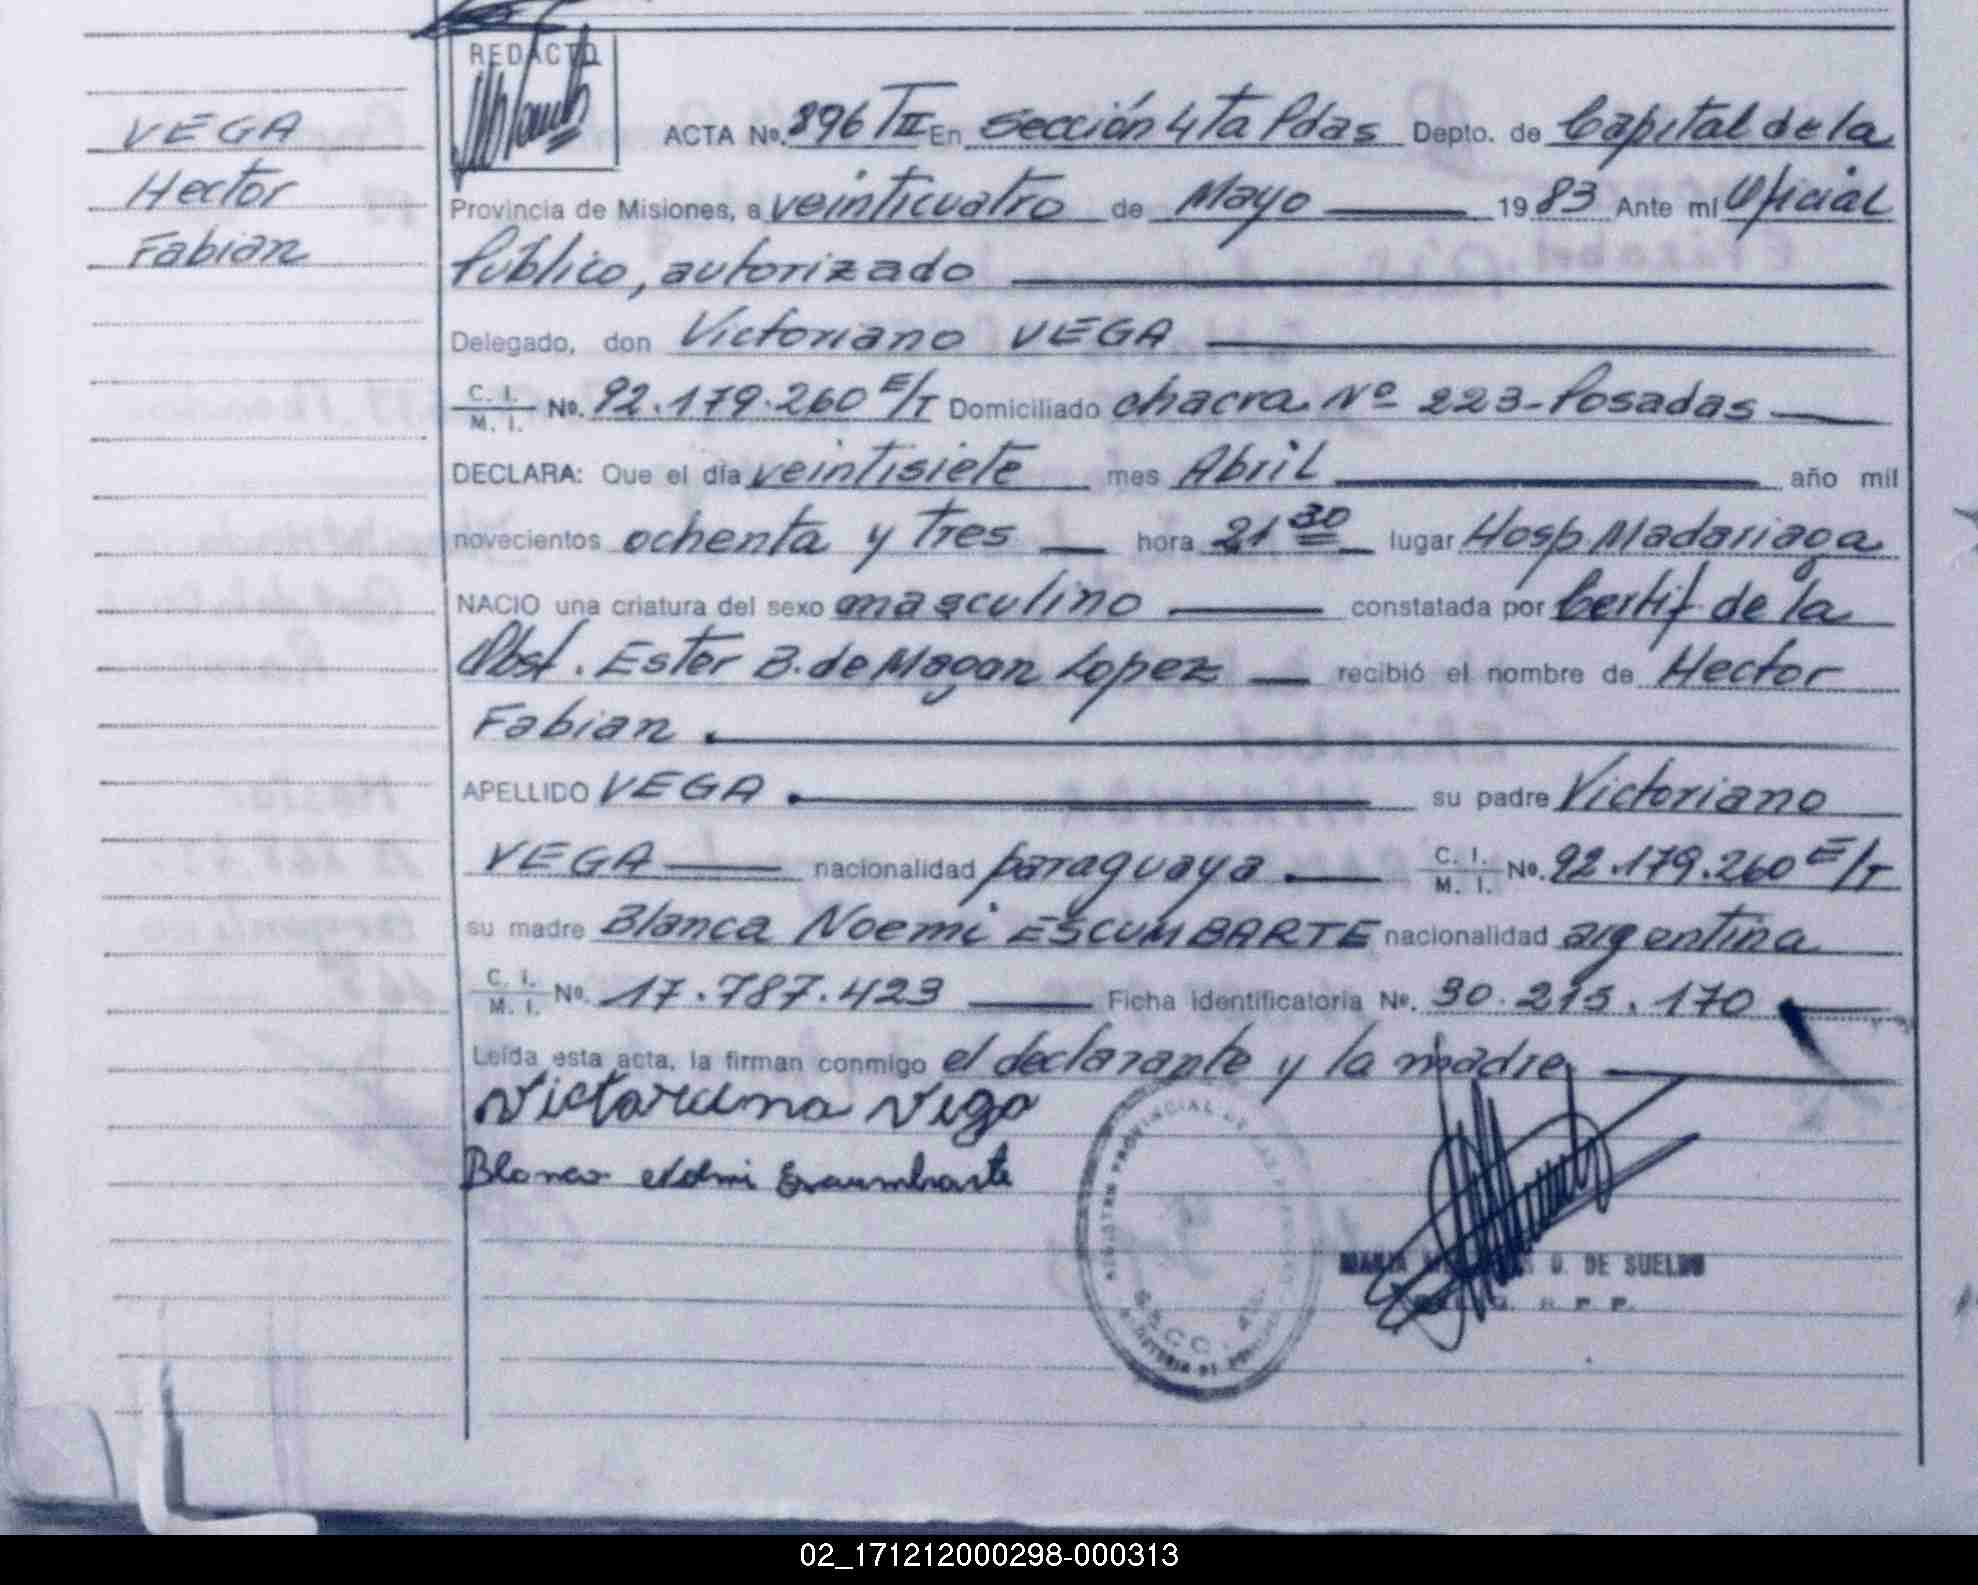 VEGA
Hector
Fabian
REDACTO
ACTA No. 896 TII En Sección 4ta Pdas Depto. de Capital de la
Provincia de Misiones, a veinticuatro de Mayo 1983 Ante mí Oficial
Público, autorizado
Delegado, don Victoriano VEGA
C. I. M. I. No. 92.179.260 E/T Domiciliado chacra Nº 223-Posadas
DECLARA: Que el día veintisiete mes Abril año mil
novecientos ochenta y tres hora 21 30 lugar Hosp Madariaga
NACIO una criatura del sexo masculino constatada por Certif de la
Obst. Ester B. de Magan Lopez recibió el nombre de Hector
Fabian.
APELLIDO VEGA su padre Victoriano
VEGA nacionalidad paraguaya. C. I. M. I. No. 92.179.260 E/T
su madre Blanca Noemi ESCUMBARTE nacionalidad argentina
C. I. M. I. No. 17.787.423 Ficha identificatoria No. 30.215.170
Leída esta acta, la firman conmigo el declarante y la madre
Victoriano Vega
Blanca Noemi Escumbarte
MARIA D. DE SUELDO
02_171212000298-000313